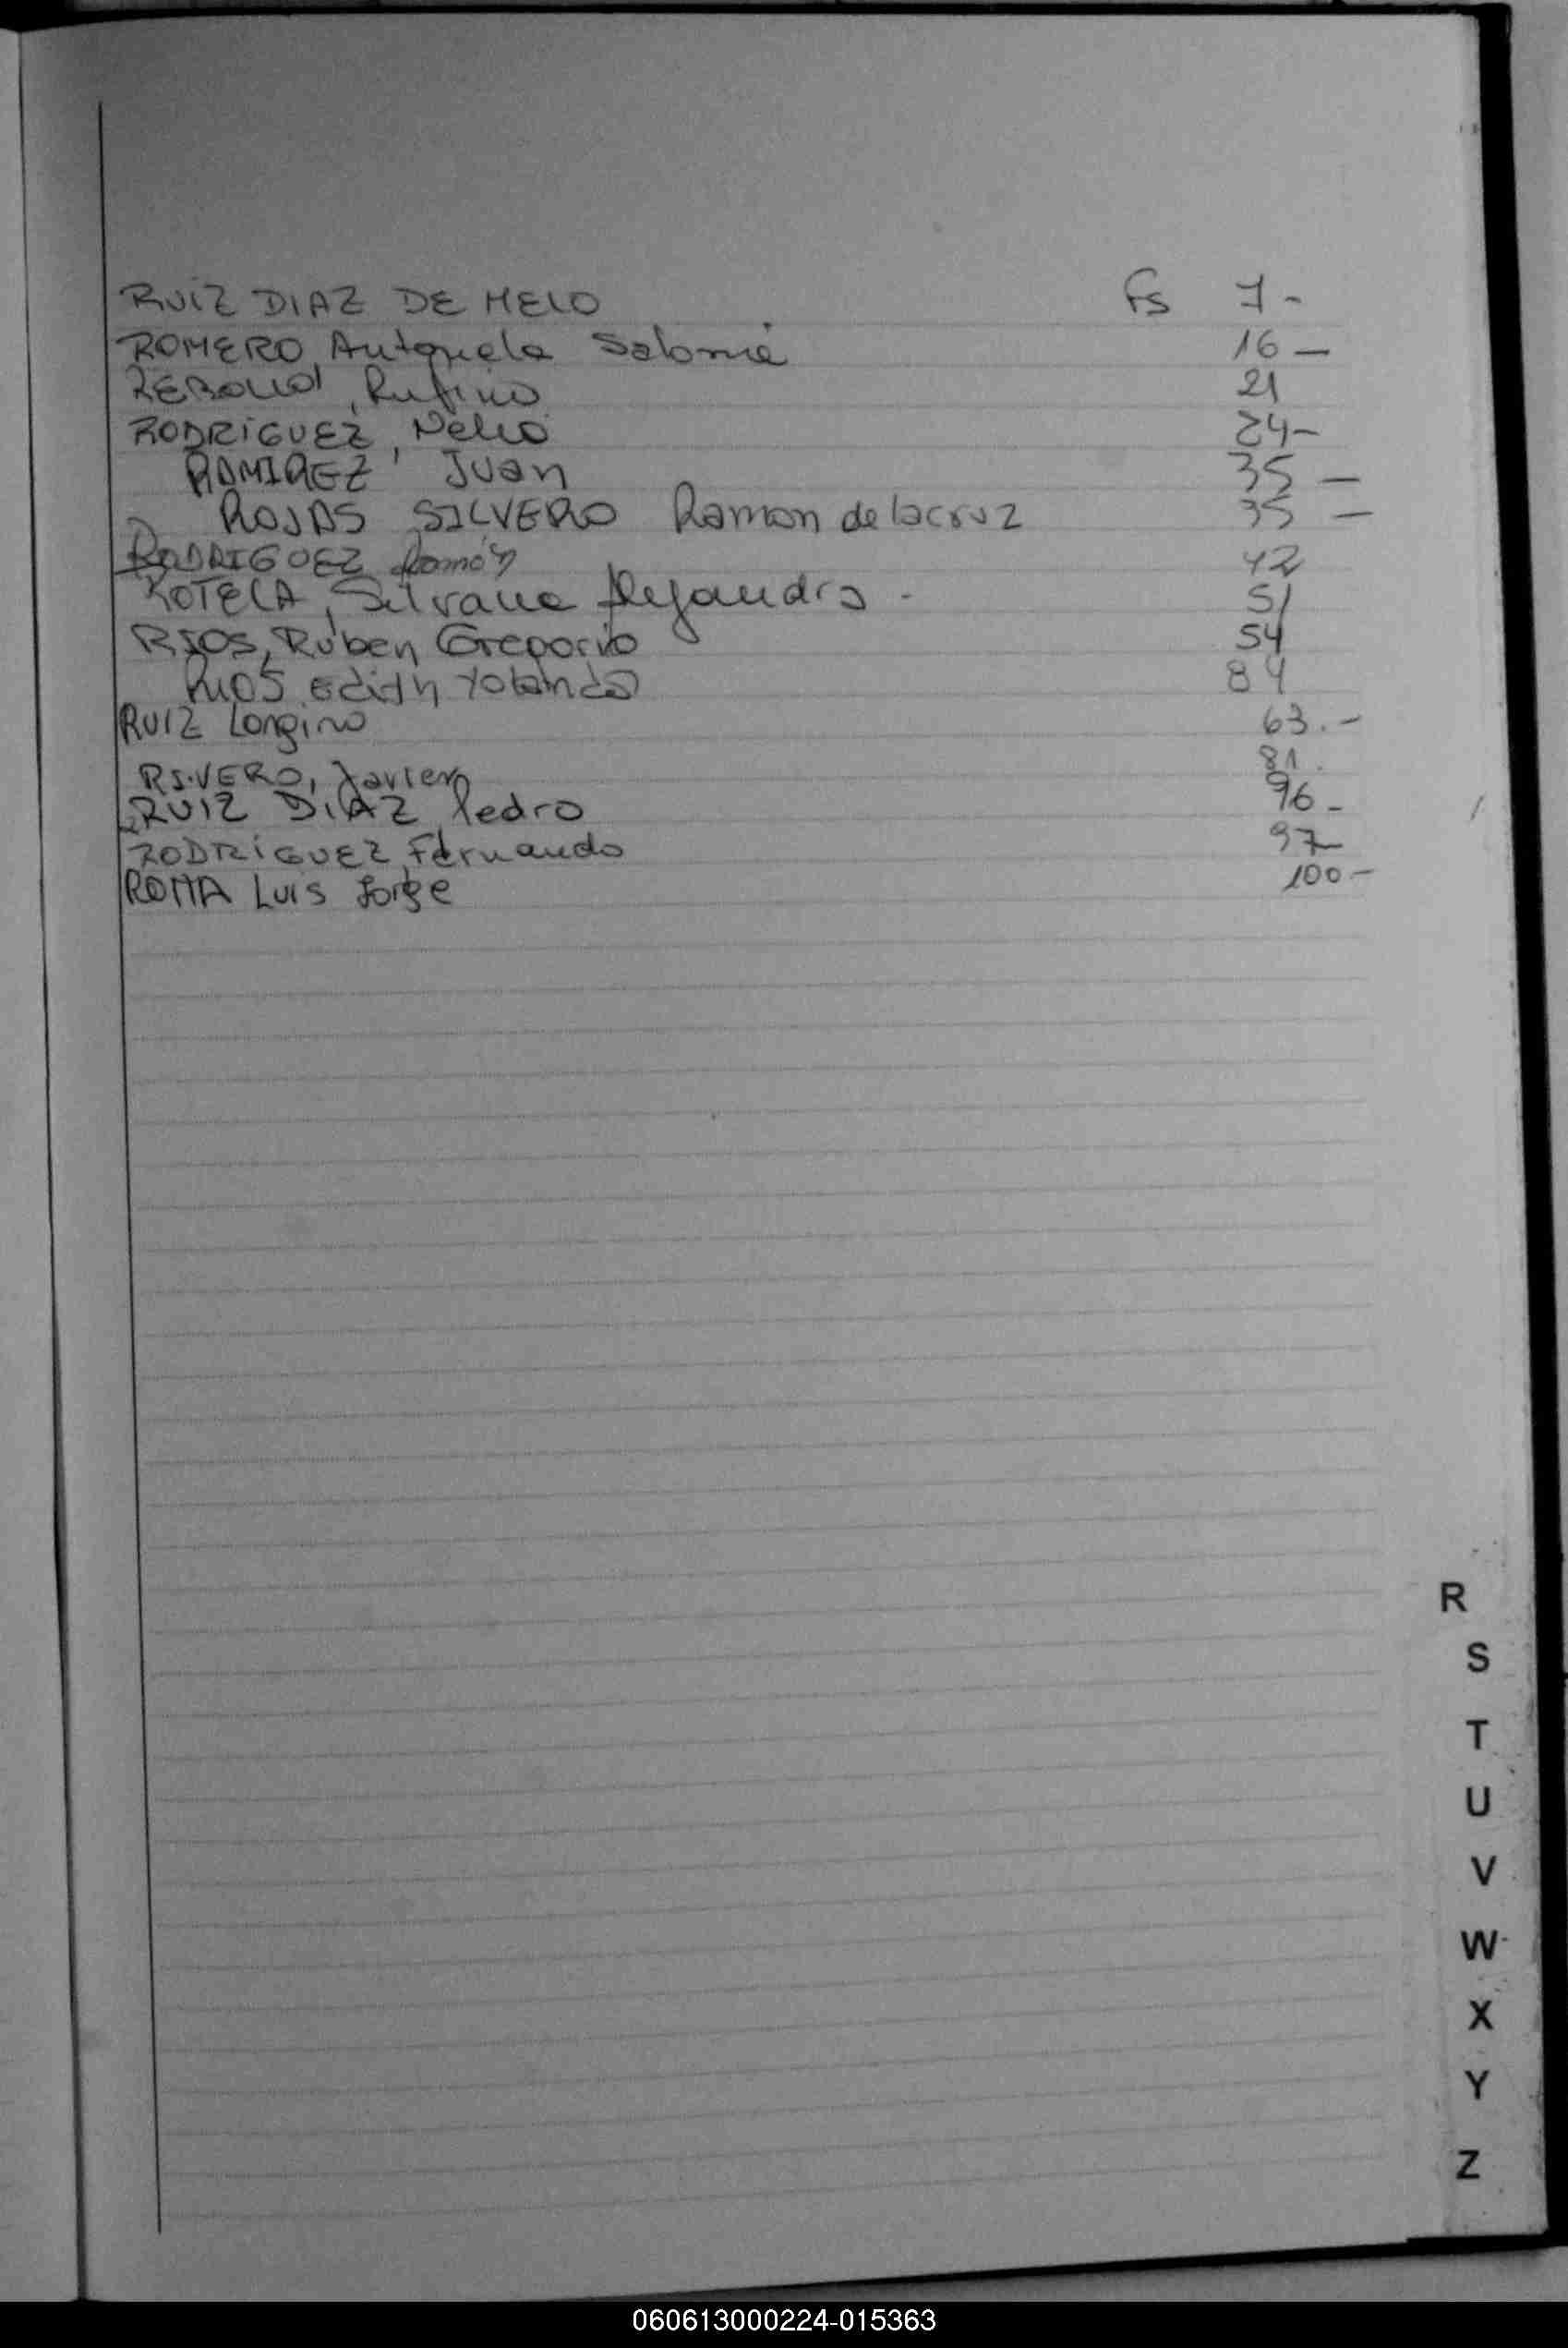 RUIZ DIAZ DE MELO Fs 7-
ROMERO, Antonela Salomé 16-
REBOLLO, Rufino 21
RODRIGUEZ, Nelio 24-
RAMIREZ Juan 35-
ROJAS SILVERO Ramon de la cruz 35-
RODRIGUEZ Ramón 42
ROTELA, Silvana Alejandra. 51
RIOS, Rúben Gregorio 54
RIOS Edith Yolanda 84
RUIZ Longino 63.-
RIVERO, Javier 81.
RUIZ DIAZ Pedro 96-
RODRIGUEZ, Fernando 97-
ROMA Luis Jorge 100-
R
S
T
U
V
W
X
Y
Z
060613000224-015363